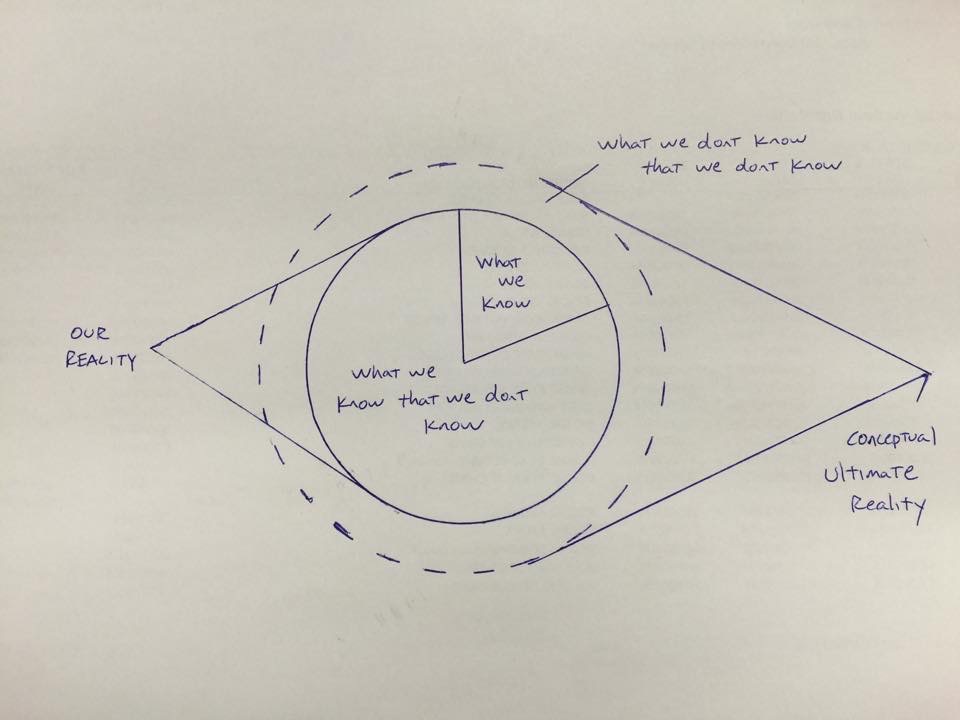 What we dont know
that we dont know
What
we
know
OUR
REALITY
What we
know that we dont
know
Conceptual
Ultimate
Reality